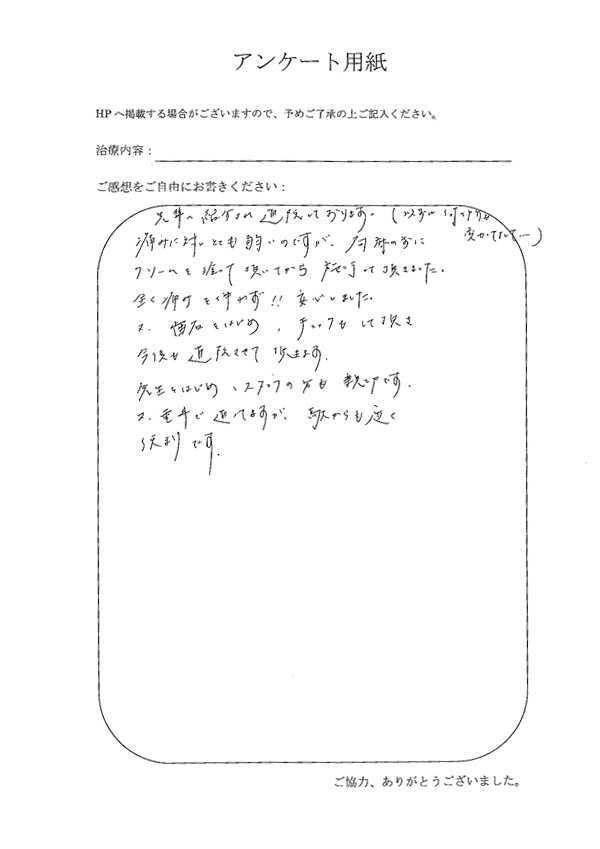 アンケート用紙
HPへ掲載する場合がございますので、予めご了承の上ご記入ください。
治療内容：
ご感想をご自由にお書きください：
紹介され 通院しております。(以前
痛みに対しとても弱いのですが、
クリームを塗って頂いてから 施術して頂きました。
全く痛みを伴わず!! 安心しました。
又、 をはじめ、チェックもして頂き
今後も通院させて頂きます。
先生をはじめ、スタッフの方も親切です。
又、電車で通ってますが、駅からも近く
便利です。
ご協力、ありがとうございました。